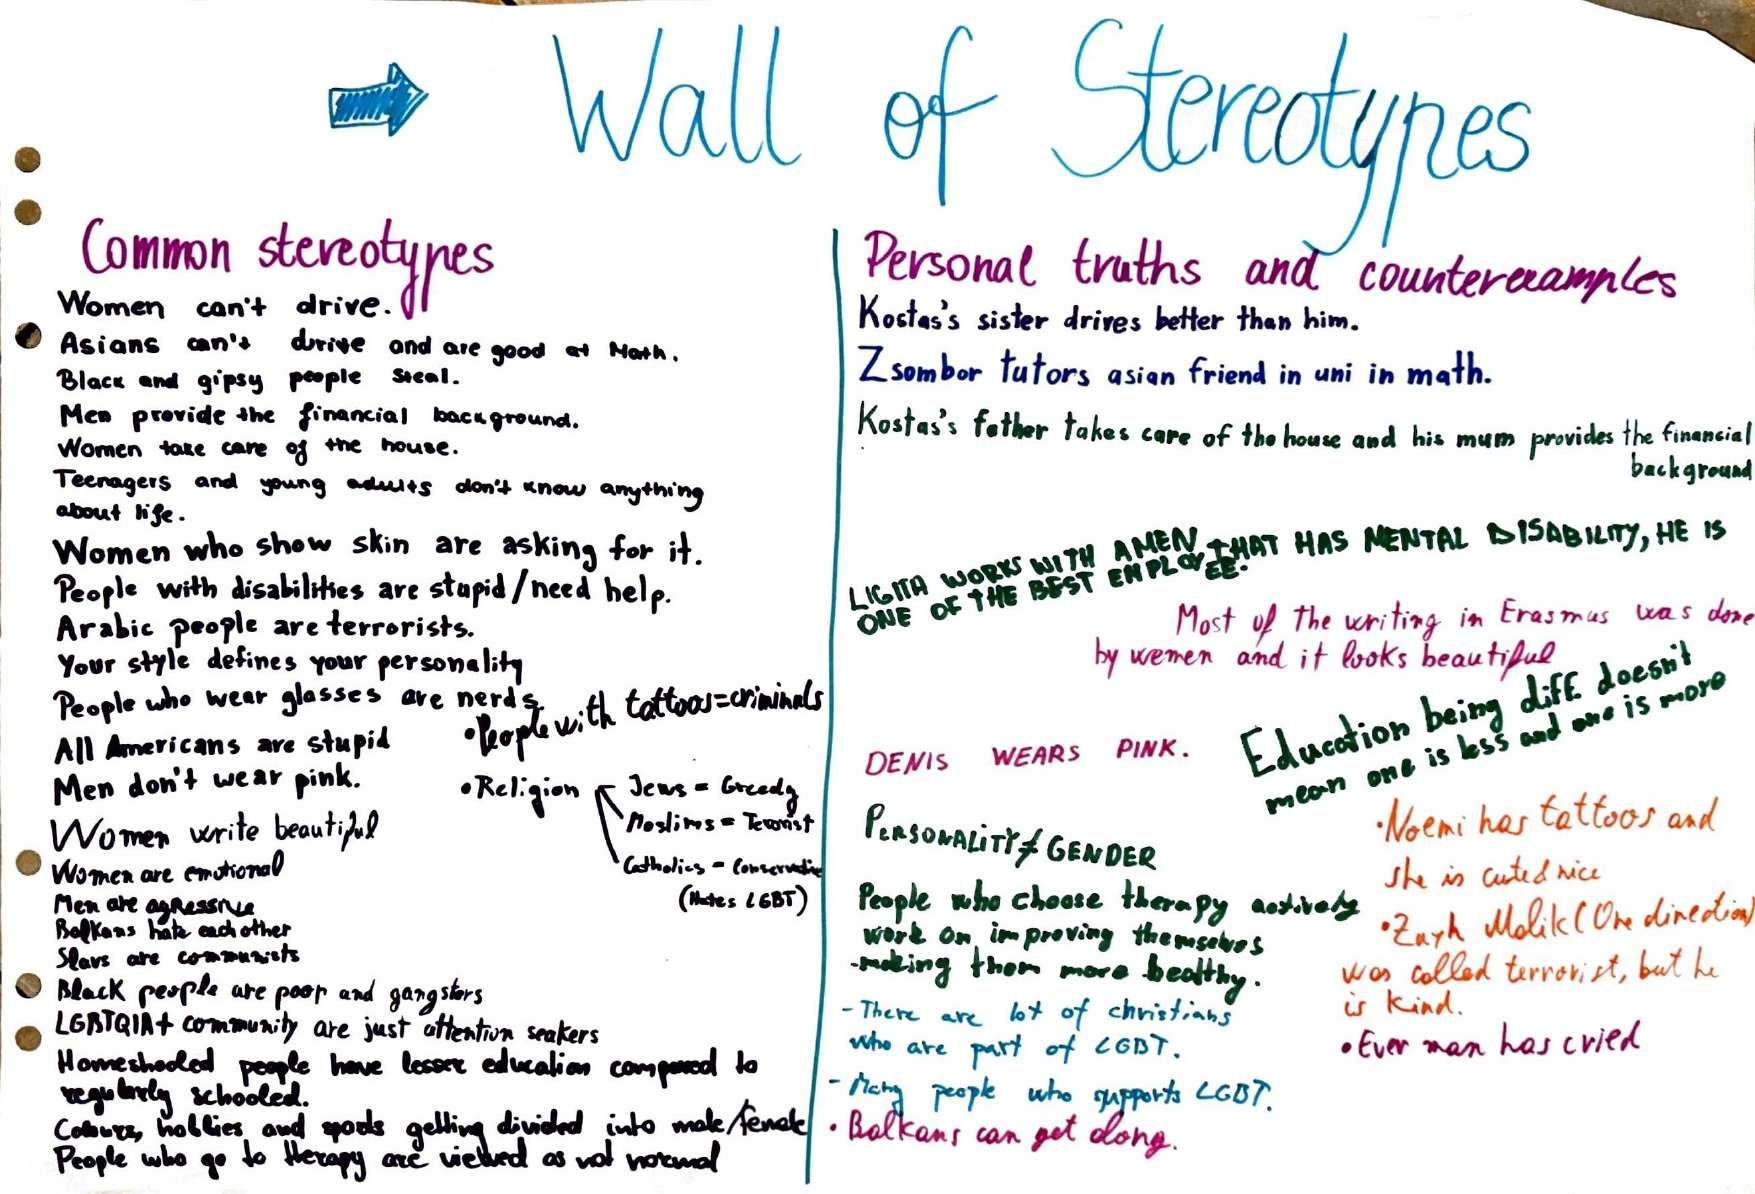 Wall of Stereotypes
Common stereotypes
Women can't drive.
Asians can't drive and are good at Math.
Black and gipsy people steal.
Men provide the financial background.
Women take care of the house.
Teenagers and young adults don't know anything
about life.
Women who show skin are asking for it.
People with disabilities are stupid/need help.
Arabic people are terrorists.
Your style defines your personality
People who wear glasses are nerds
•People with tattoos=criminals
All Americans are stupid
Men don't wear pink.
•Religion
Jews = Greedy
Moslims = Terorist
Catholics - Conservative
(Hates LGBT)
Women write beautiful
Women are emotional
Men are agressive
Balkans hate each other
Slavs are communists
Black people are poor and gangsters
LGBTQIA+ community are just attention seekers
Homeshooled people have lesser education compared to
regularly schooled.
Colours, hobbies and sports getting divided into male/female
People who go to therapy are viewed as not normal
Personal truths and counterexamples
Kostas's sister drives better than him.
Zsombor tutors asian friend in uni in math.
Kostas's father takes care of the house and his mum provides the financial
background
LIGITA WORKS WITH A MEN THAT HAS MENTAL DISABILITY, HE IS
ONE OF THE BEST EMPLOYEE.
Most of the writing in Erasmus was done
by wemen and it looks beautiful
Education being diff. doesn't
mean one is less and one is more
DENIS WEARS PINK.
PERSONALITY ≠ GENDER
People who choose therapy actively
work on improving themselves
-making them more healthy.
- There are lot of christians
who are part of LGBT.
- Many people who supports LGBT.
• Balkans can get along.
•Noemi has tattoos and
she is cute d nice
•Zayn Malik (One direction)
was called terrorist, but he
is kind.
•Ever man has cried